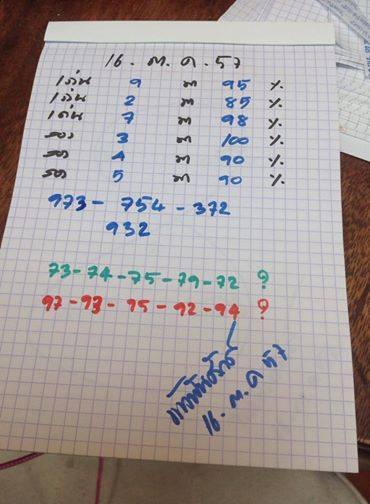 16. ต. ค. 57
เด่น 9 ต 95 %
เด่น 2 ต 85 %
เด่น 7 ต 98 %
รอง 3 ต 100 %
รอง 4 ต 90 %
รอง 5 ต 90 %
973 - 754 - 372
932
73 - 74 - 75 - 79 - 72 ?
97 - 93 - 95 - 92 - 94 ?
16. ต. ค 57